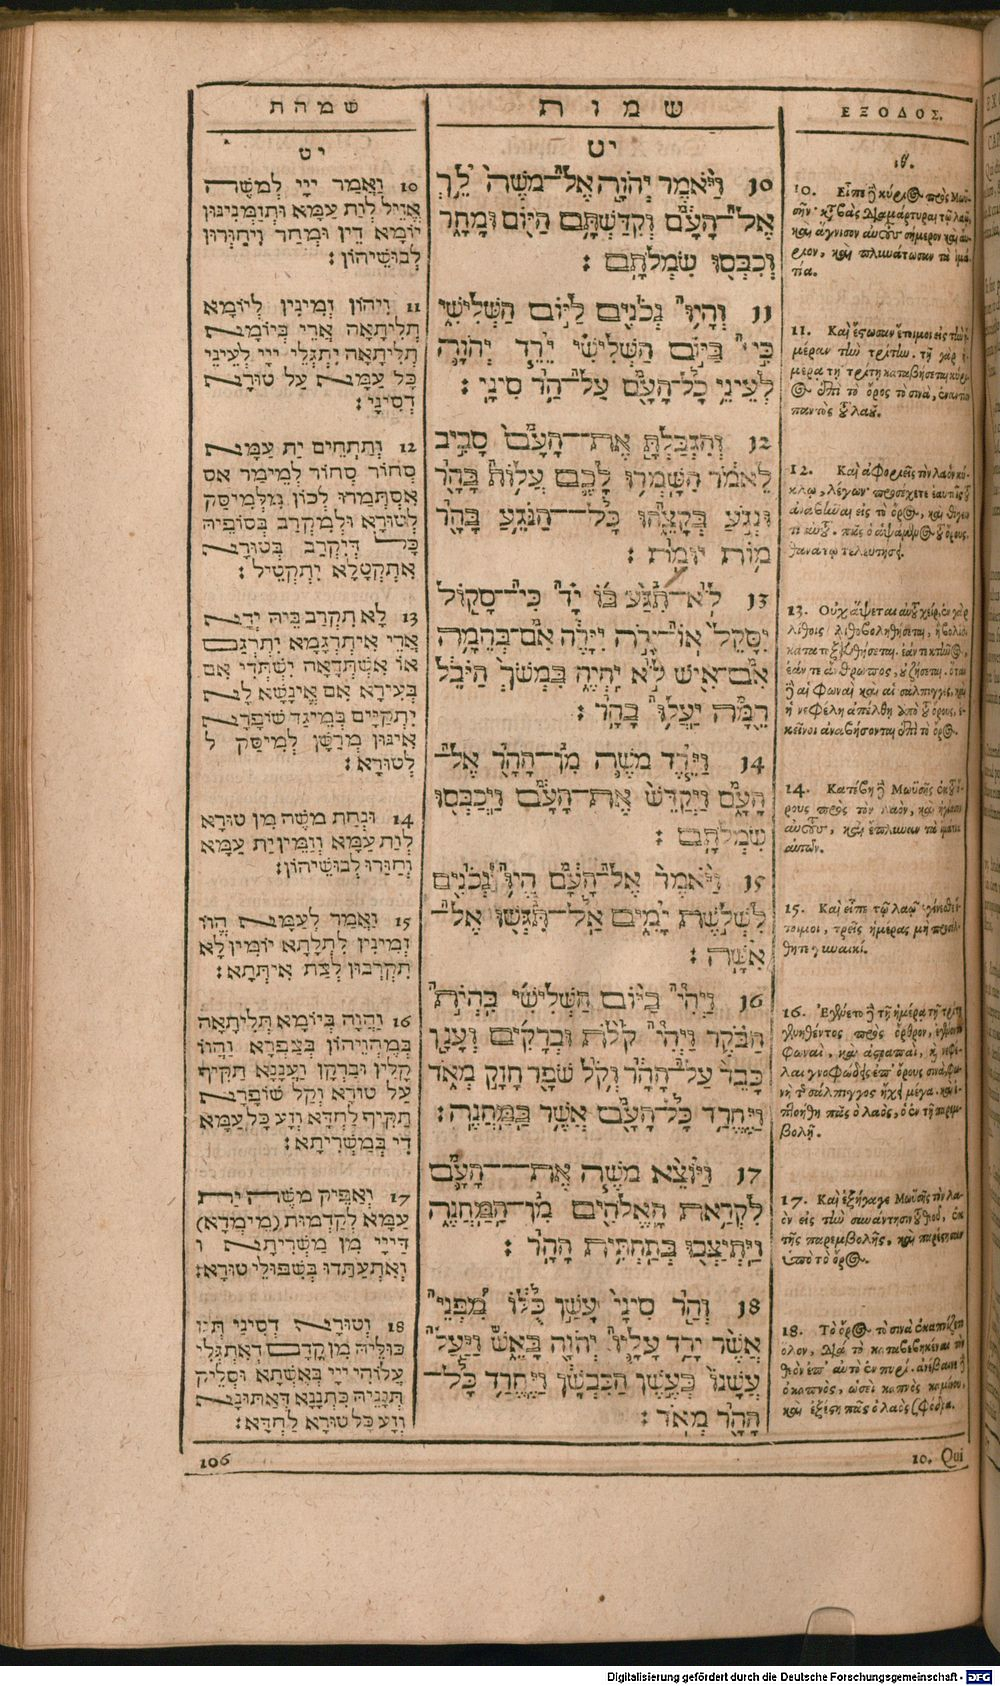 שמהת
יט
10 וַאֲמַר יְיָי לְמשֶׁה
אֱזֵיל לְוַת עַמָּא וּתְזַמֵּינִינוּן
יוֹמָא דֵין וּמְחַר וִיחַוְּרוּן
לְבוּשֵׁיהוֹן׃
11 וִיהוֹן זְמִינִין לְיוֹמָא
תְלִיתָאָה אֲרֵי בְּיוֹמָא
תְלִיתָאָה יִתְגְּלֵי יְיָי לְעֵינֵי
כָּל עַמָּא עַל טוּרָא
דְסִינָי׃
12 וּתְתַחֵים יָת עַמָּא
סְחוֹר סְחוֹר לְמֵימַר אִס
אִסְתַּמַּרוּ לְכוֹן מִלְּמִיסַּק
לְטוּרָא וּלְמִקְרַב בְּסוֹפֵיהּ
כָּל דְּיִקְרַב בְּטוּרָא
אִתְקְטָלָא יִתְקְטֵיל׃
13 לָא תִקְרַב בֵּיהּ יְדָא
אֲרֵי אִיתְרְגָמָא יִתְרְגֵם
אוֹ אִשְׁתְּדָאָה יִשְׁתְּדֵי אִם
בְּעִירָא אִם אֱינָשָׁא לָא
יִתְקַיַּים בְּמֵיגַד שׁוֹפָרָא
אִינוּן מְרַשָּׁן לְמִיסַּק ל
לְטוּרָא׃
14 וּנְחַת משֶׁה מִן טוּרָא
לְוַת עַמָּא וְזַמֵּין יָת עַמָּא
וְחַוַּרוּ לְבוּשֵׁיהוֹן׃
15 וַאֲמַר לְעַמָּא הֲווֹ
זְמִינִין לִתְלָתָא יוֹמִין לָא
תִקְרְבוּן לְצַד אִיתְּתָא׃
16 וַהֲוָה בְּיוֹמָא תְּלִיתָאָה
בְּמֶהֱוֵיהוֹן בְּצַפְרָא וַהֲווֹ
קָלִין וּבַרְקִין וַעֲנָנָא תַקִּיף
עַל טוּרָא וְקָל שׁוֹפָרָא
תַּקִּיף לַחְדָּא וְזָע כָּל עַמָּא
דִי בְּמַשְׁרִיתָא׃
17 וְאַפֵּיק משֶׁה יָת
עַמָּא לְקַדָּמוּת (מֵימְרָא)
דַּייָי מִן מַשְׁרִיתָא ו
וְאִתְעַתַּדוּ בְּשִׁפּוּלֵי טוּרָא׃
18 וְטוּרָא דְסִינַי תְּנַן
כּוּלֵּיהּ מִן קֳדָם דְאִתְגְּלִי
עֲלוֹהִי יְיָי בְּאֶשָּׁתָא וּסְלֵיק
תְּנָנֵיהּ כִּתְנָנָא דְאַתּוּנָא
וְזָע כָּל טוּרָא לַחְדָּא׃
שמות
יט
10 וַיֹּאמֶר יְהוָֹה אֶל־משֶׁה לֵךְ
אֶל־הָעָם וְקִדַּשְׁתָּם הַיּוֹם וּמָחָר
וְכִבְּסוּ שִׂמְלֹתָם׃
11 וְהָיוּ נְכֹנִים לַיּוֹם הַשְּׁלִישִׁי
כִּי בַּיּוֹם הַשְּׁלִישִׁי יֵרֵד יְהוָֹה
לְעֵינֵי כָל־הָעָם עַל־הַר סִינָי׃
12 וְהִגְבַּלְתָּ אֶת־הָעָם סָבִיב
לֵאמֹר הִשָּׁמְרוּ לָכֶם עֲלוֹת בָּהָר
וּנְגֹעַ בְּקָצֵהוּ כָּל־הַנֹּגֵעַ בָּהָר
מוֹת יוּמָת׃
13 לֹא־תִגַּע בּוֹ יָד כִּי־סָקוֹל
יִסָּקֵל אוֹ־יָרֹה יִיָּרֶה אִם־בְּהֵמָה
אִם־אִישׁ לֹא יִחְיֶה בִּמְשֹׁךְ הַיֹּבֵל
הֵמָּה יַעֲלוּ בָהָר׃
14 וַיֵּרֶד משֶׁה מִן־הָהָר אֶל־
הָעָם וַיְקַדֵּשׁ אֶת־הָעָם וַיְכַבְּסוּ
שִׂמְלֹתָם׃
15 וַיֹּאמֶר אֶל־הָעָם הֱיוּ נְכֹנִים
לִשְׁלשֶׁת יָמִים אַל־תִּגְּשׁוּ אֶל־
אִשָּׁה׃
16 וַיְהִי בַיּוֹם הַשְּׁלִישִׁי בִּהְיֹת
הַבֹּקֶר וַיְהִי קֹלֹת וּבְרָקִים וְעָנָן
כָּבֵד עַל־הָהָר וְקֹל שֹׁפָר חָזָק מְאֹד
וַיֶּחֱרַד כָּל־הָעָם אֲשֶׁר בַּמַּחֲנֶה׃
17 וַיּוֹצֵא משֶׁה אֶת־הָעָם
לִקְרַאת הָאֱלֹהִים מִן־הַמַּחֲנֶה
וַיִּתְיַצְּבוּ בְּתַחְתִּית הָהָר׃
18 וְהַר סִינַי עָשַׁן כֻּלּוֹ מִפְּנֵי
אֲשֶׁר יָרַד עָלָיו יְהוָֹה בָּאֵשׁ וַיַּעַל
עֲשָׁנוֹ כְּעֶשֶׁן הַכִּבְשָׁן וַיֶּחֱרַד כָּל־
הָהָר מְאֹד׃
ΕΞΟΔΟΣ.
ιθ.
10. Εἶπε δὲ κύριος πρὸς Μωυ-
σῆν· καταβὰς διαμάρτυραι τῷ λαῷ,
καὶ ἅγνισον αὐτοὺς σήμερον καὶ αὔ-
ριον, καὶ πλυνάτωσαν τὰ ἱμά-
τια.
11. Καὶ ἔστωσαν ἕτοιμοι εἰς τὴν ἡ-
μέραν τὴν τρίτην. τῇ γὰρ ἡ-
μέρᾳ τῇ τρίτῃ καταβήσεται κύρι-
ος ἐπὶ τὸ ὄρος τὸ σινὰ, ἐναντίον
παντὸς τοῦ λαοῦ.
12. Καὶ ἀφοριεῖς τὸν λαὸν κύ-
κλῳ, λέγων· προσέχετε ἑαυτοῖς τοῦ
ἀναβῆναι εἰς τὸ ὄρος, καὶ θίγειν
τι αὐτοῦ. πᾶς ὁ ἁψάμενος τοῦ ὄρους,
θανάτῳ τελευτήσει.
13. Οὐχ ἅψεται αὐτοῦ χείρ, ἐν γὰρ
λίθοις λιθοβοληθήσεται, ἢ βολίδι
κατατοξευθήσεται. ἐάν τε κτῆνος,
ἐάν τε ἄνθρωπος, οὐ ζήσεται. ὅταν
δὲ αἱ φωναὶ καὶ αἱ σάλπιγγες, καὶ
ἡ νεφέλη ἀπέλθῃ ἀπὸ τοῦ ὄρους, ἐ-
κεῖνοι ἀναβήσονται ἐπὶ τὸ ὄρος.
14. Κατέβη δὲ Μωϋσῆς ἐκ τοῦ ὄ-
ρους πρὸς τὸν λαὸν, καὶ ἡγίασεν
αὐτοὺς, καὶ ἔπλυναν τὰ ἱμάτια
αὐτῶν.
15. Καὶ εἶπε τῷ λαῷ· γίνεσθε ἕ-
τοιμοι, τρεῖς ἡμέρας μὴ προσέλ-
θητε γυναικί.
16. Ἐγένετο δὲ τῇ ἡμέρᾳ τῇ τρίτῃ
γενηθέντος πρὸς ὄρθρον, ἐγένοντο
φωναὶ, καὶ ἀστραπαὶ, καὶ νεφέ-
λαι γνοφώδεις ἐπ᾽ ὄρους σινὰ, φω-
νὴ τῆς σάλπιγγος ἤχει μέγα. καὶ ἐ-
πτοήθη πᾶς ὁ λαὸς, ὁ ἐν τῇ παρεμ-
βολῇ.
17. Καὶ ἐξήγαγε Μωϋσῆς τὸν λα-
ὸν εἰς τὴν συνάντησιν τοῦ θεοῦ, ἐκ
τῆς παρεμβολῆς, καὶ παρέστησαν
ὑπὸ τὸ ὄρος.
18. Τὸ ὄρος τὸ σινὰ ἐκαπνίζετο
ὅλον, διὰ τὸ καταβεβηκέναι τὸν
θεὸν ἐπ᾽ αὐτὸ ἐν πυρί. ἀνέβαινε δὲ
ὁ καπνὸς, ὡσεὶ καπνὸς καμίνου,
καὶ ἐξέστη πᾶς ὁ λαὸς σφόδρα.
106
10. Qui
Digitalisierung gefördert durch die Deutsche Forschungsgemeinschaft - DFG